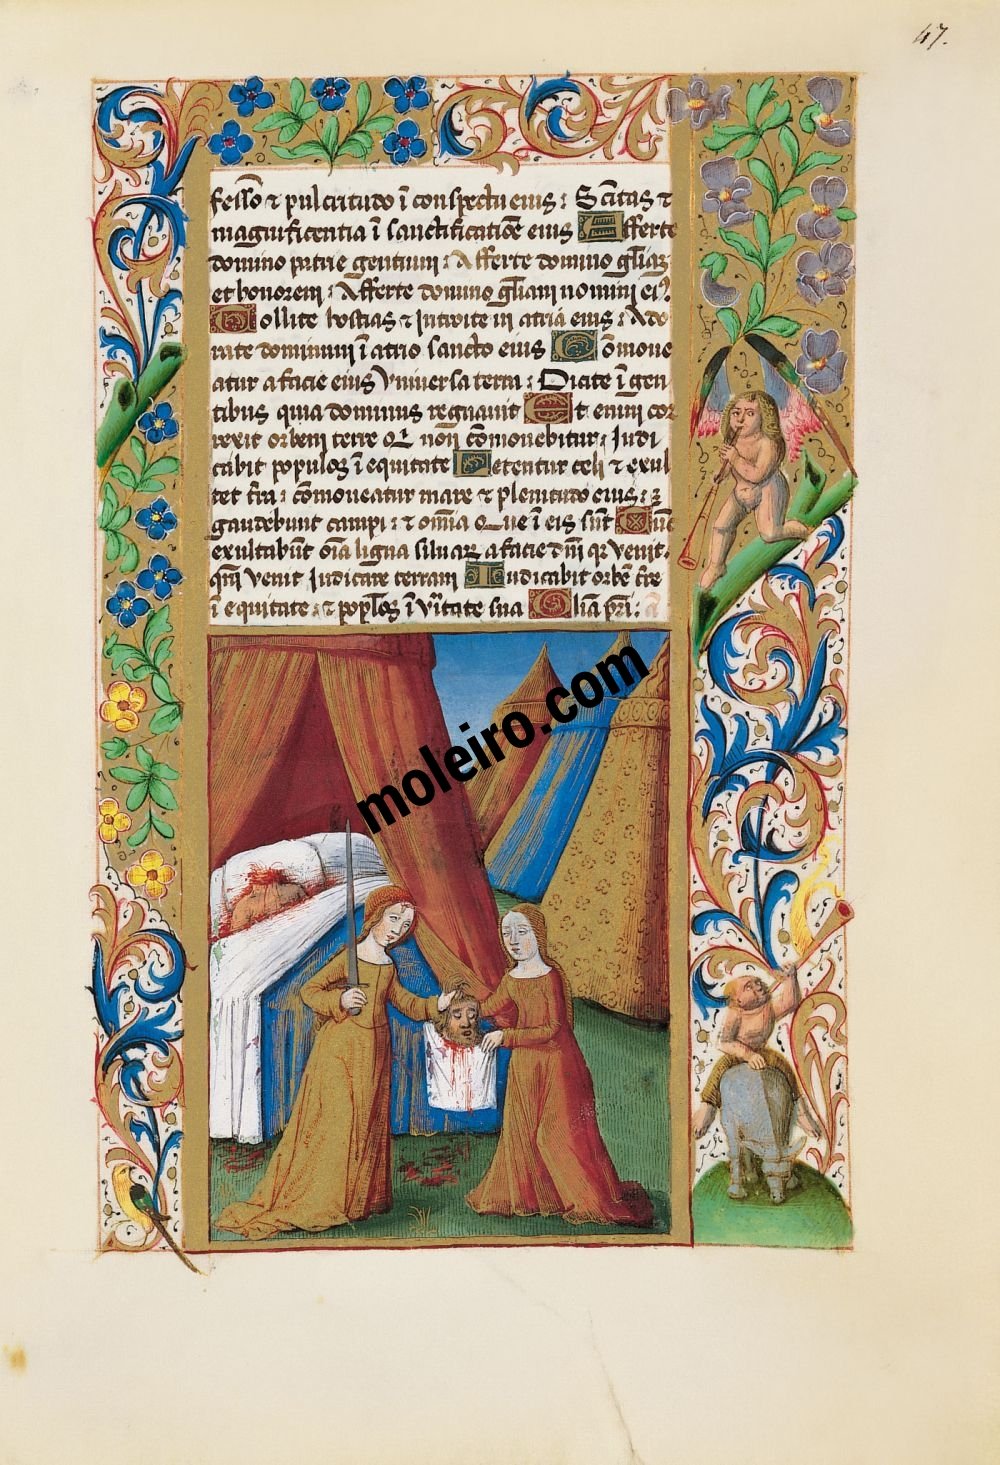 47.
fesso ⁊ pulcritudo ĩ conspectu eius : Sc̃itas ⁊
magnificentia ĩ sanctificatiõe eius Afferte
domino patrie gentium : Afferte domino gl̃iaꝫ
et honorem : Afferte domino gl̃iam nomini ei⁹.
Tollite hostias ⁊ Introite in atria eius : Ado
rate dominum ĩ atrio sancto eius Comoue
atur a facie eius Vniuersa terra : Dicite ĩ gen
tibus quia dominus regnauit Et enim cor
rexit orbem terre qͥ non cõmouebitur : Iudi
cabit populos ĩ equitate Letentur celi ⁊ exul
tet tr̃a : cõmoueatur mare ⁊ plenitudo eius :
gaudebunt campi : ⁊ om̃ia Que ĩ eis sũt Tũc
exultabũt oĩa ligna siluaꝝ a facie dñi qꝛ venit.
qm̃ venit Iudicare terram Iudicabit orbẽ tr̃e
ĩ equitate : ⁊ pop̃los ĩ Vĩtate sua Gl̃ia pr̃i :
moleiro.com